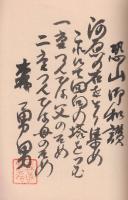 恐山御和讃
河原の石をとり集め
これにて回向の塔をつむ
一重つんでは父のため
二重つんでは母のため
森勇男